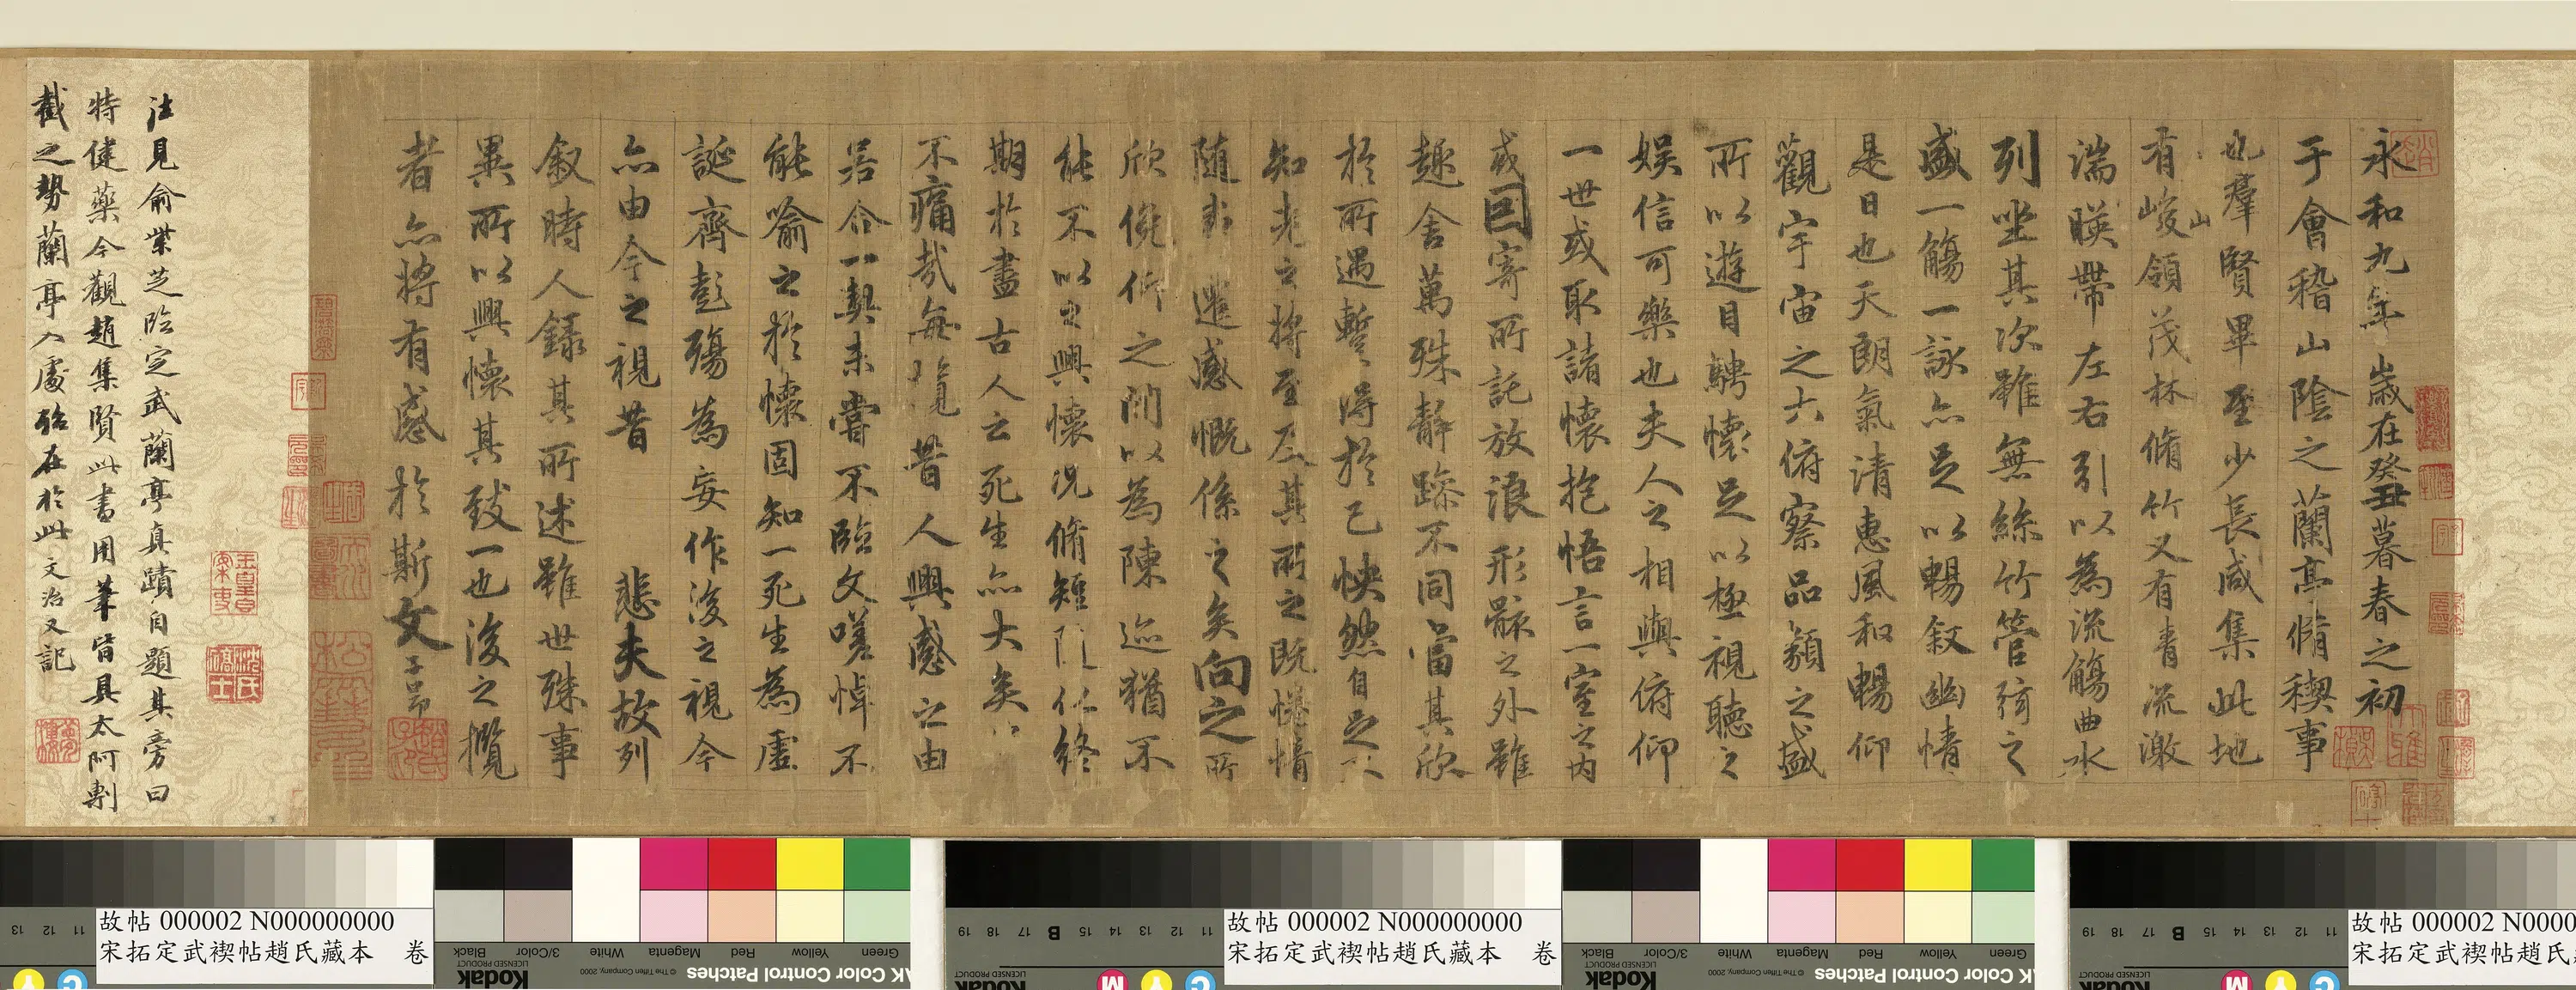 永和九年歲在癸丑暮春之初
于會稽山陰之蘭亭脩稧事
也羣賢畢至少長咸集此地
有峻領茂林脩竹又有青流激
山
湍暎帶左右引以為流觴曲水
列坐其次雖無絲竹管弦之
盛一觴一詠亦足以暢敘幽情
是日也天朗氣清惠風和暢仰
觀宇宙之大俯察品類之盛
所以遊目騁懷足以極視聽之
娛信可樂也夫人之相與俯仰
一世或取諸懷抱悟言一室之內
或因寄所託放浪形骸之外雖
趣舍萬殊靜躁不同當其欣
於所遇暫得於己怏然自足不
知老之將至及其所之既惓情
隨 遷感慨係之矣向之所
欣俛仰之間以為陳迹猶不
能不以之興懷況脩短隨化終
期於盡古人云死生亦大矣
不痛哉每覽昔人興感之由
若合一契未嘗不臨文嗟悼不
能喻之於懷固知一死生為虛
誕齊彭殤為妄作後之視今
亦由今之視昔 悲夫故列
敘時人錄其所述雖世殊事
異所以興懷其致一也後之攬
者亦將有感於斯文 子昂
注見俞紫芝臨定武蘭亭真蹟自題其旁曰
特健藥今觀趙集賢此書用筆皆具太阿剸
截之勢蘭亭入處殆在於此文治又記
故帖 000002 N000000000
宋拓定武禊帖趙氏藏本 卷
故帖 000002 N000000000
宋拓定武禊帖趙氏藏本 卷
故帖 000002 N0000
宋拓定武禊帖趙氏
Kodak
LICENSED PRODUCT
Black
3/Color
White
Magenta
Red
Yellow
Green
© The Tiffen Company, 2000
AK Color Control Patches
Kodak
LICENSED PRODUCT
Black
3/Color
White
Magenta
Red
Yellow
Green
© The Tiffen Company, 2000
AK Color Control Patches
11 12 13
11 12 13 14 15 B 17 18 19
11 12 13 14 15 B 17 18 19
C Y
C Y M
C Y M